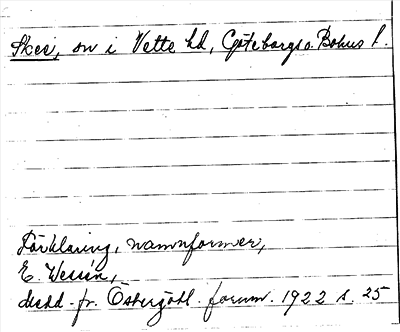 Skee, sn i Vette hd, Göteborgs o. Bohus l.
Förklaring, namnformer,
E. Wessén,
Medd. fr. Östergötl. fornm. 1922 s. 25